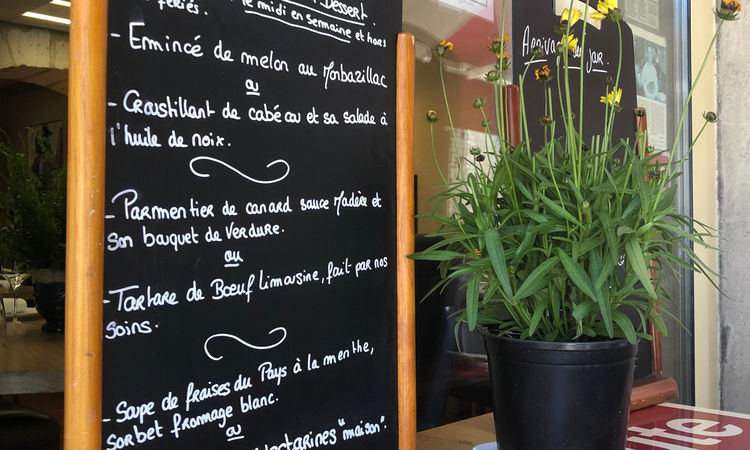 Dessert.
fériés.
le midi en semaine et hors
- Emincé de melon au Monbazillac
ou
- Croustillant de cabécou et sa salade à
l'huile de noix.
- Parmentier de canard sauce Madère et
son bouquet de verdure.
ou
- Tartare de Bœuf Limousine, fait par nos
soins.
- Soupe de fraises du Pays à la menthe,
sorbet fromage blanc.
ou
Nectarines "maison".
Arrivage du jour